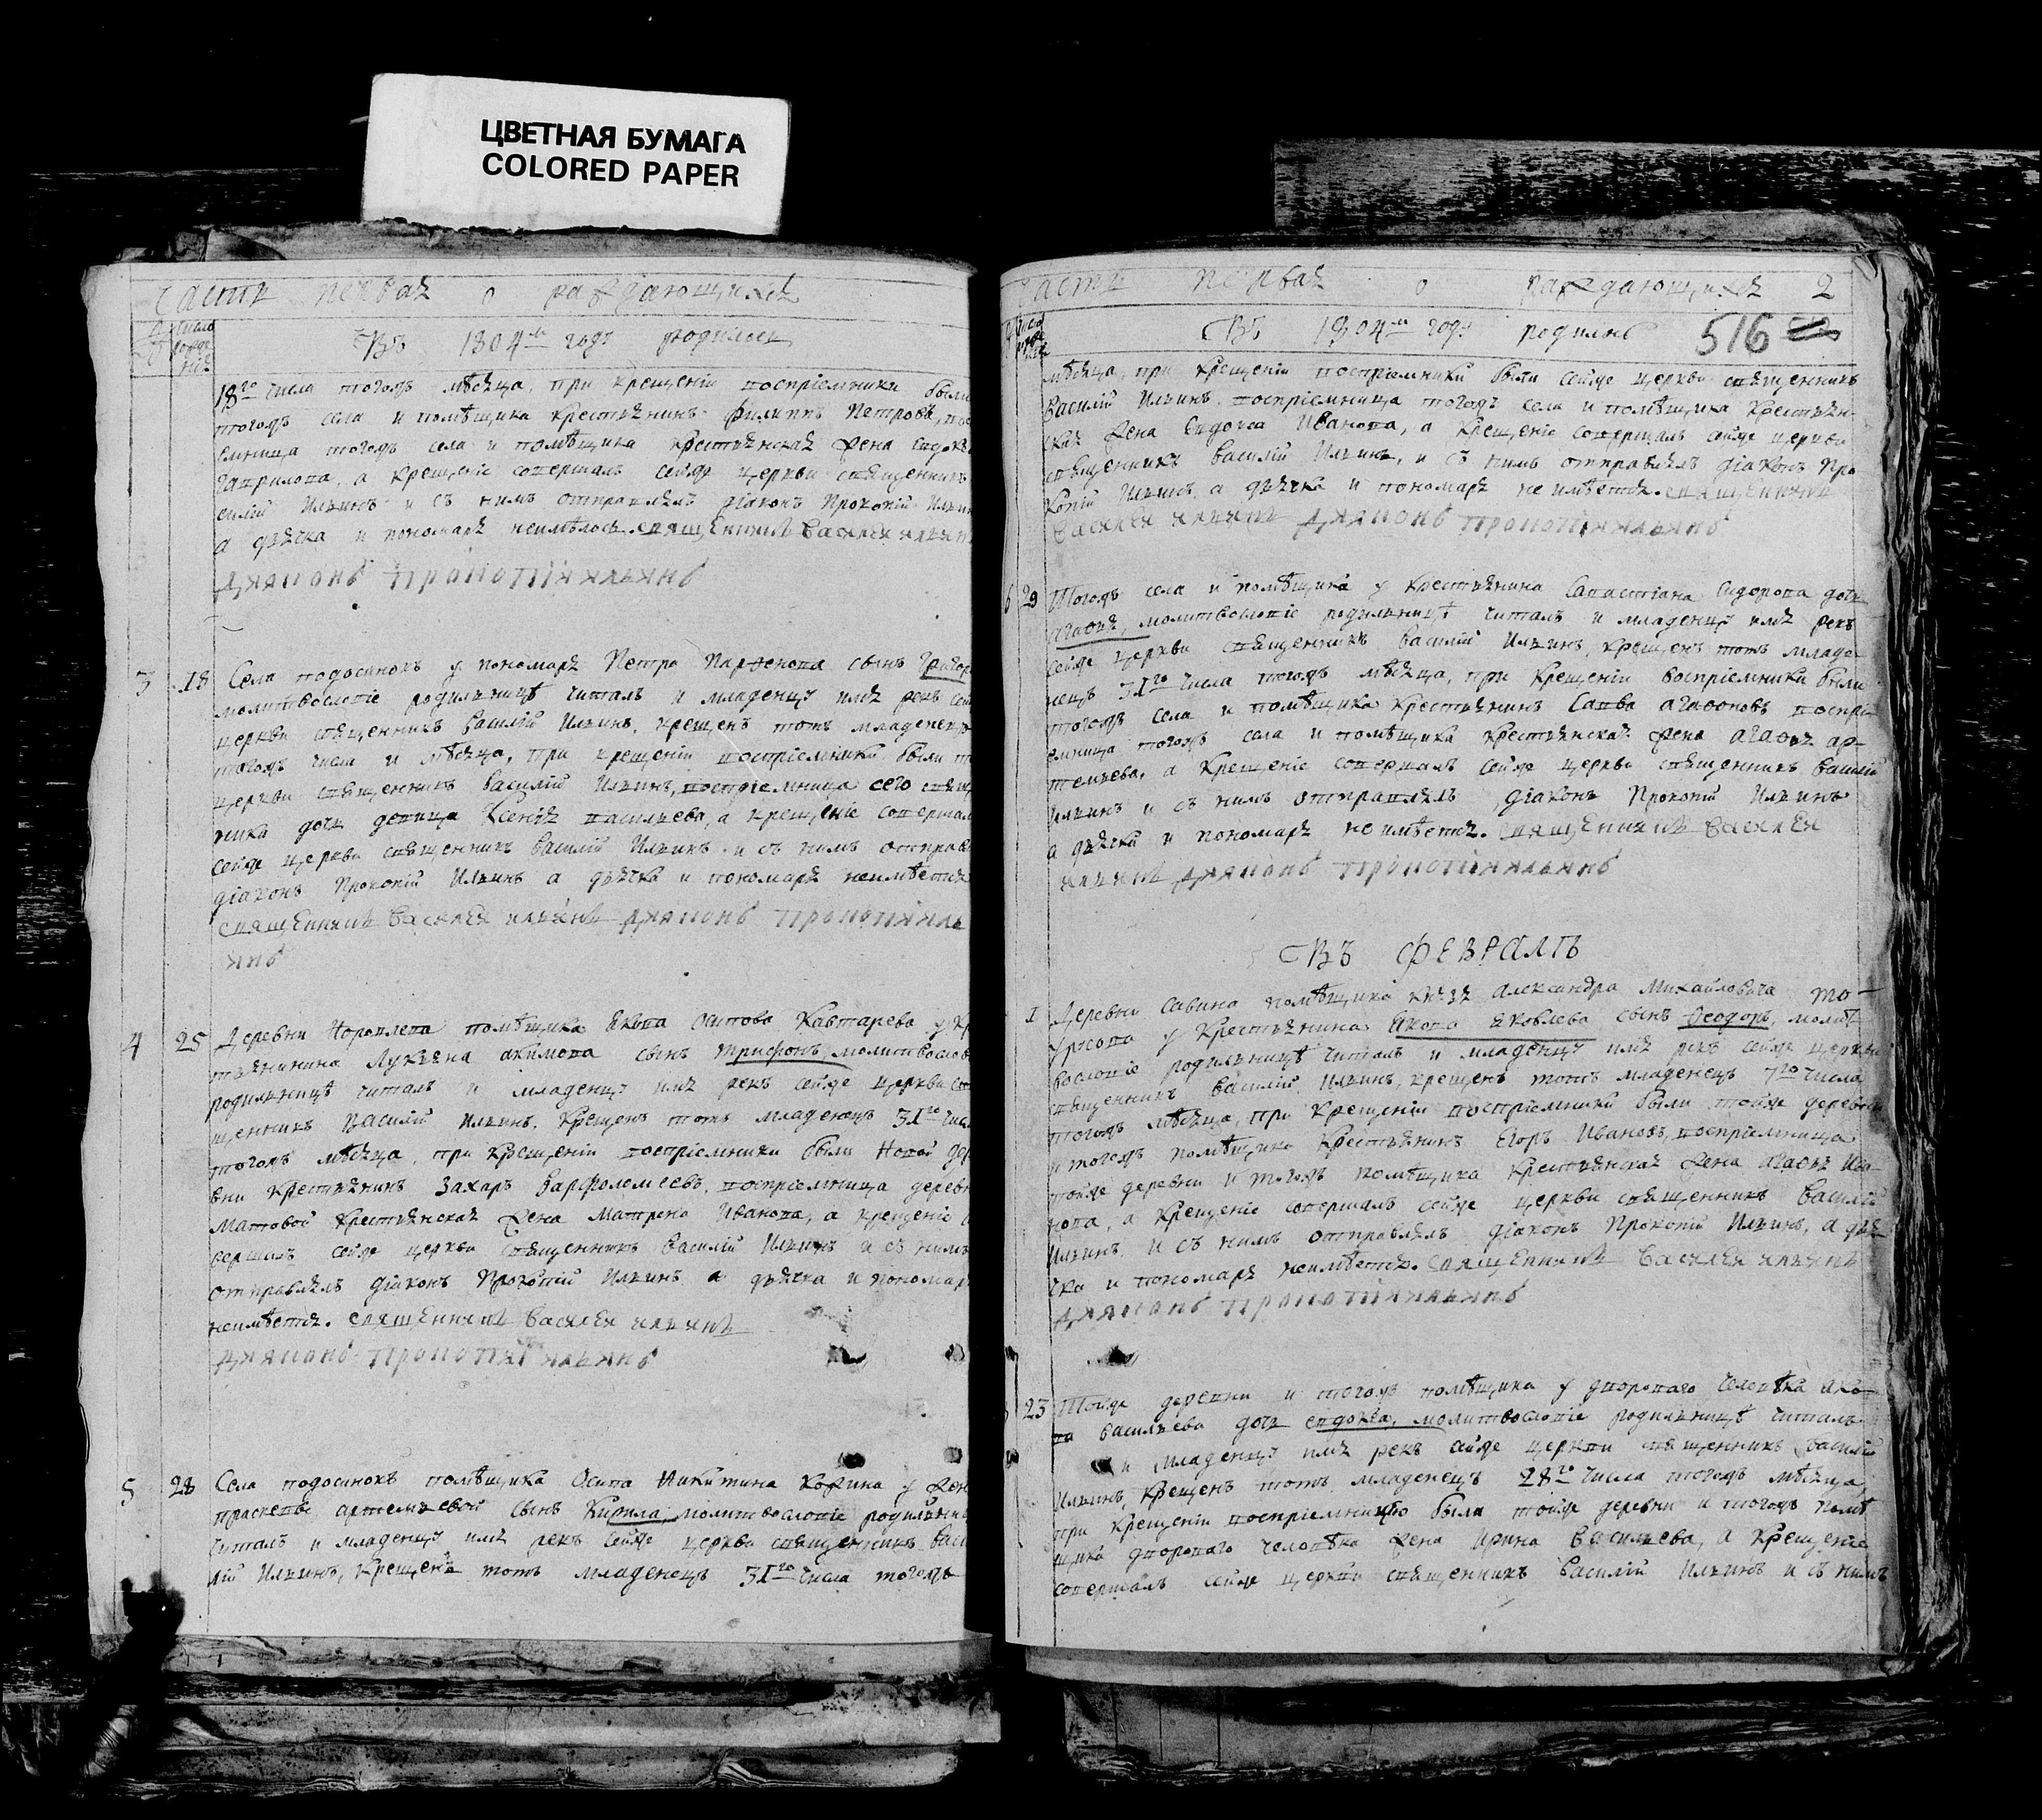 ЦВЕТНАЯ БУМАГА
COLORED PAPER
часть первая о раждающихся
Въ 1804м годѣ родилось
18го числа тогожъ мѣсяца, при крещеніи воспріемники были
тогожъ села и помѣщика крестьянинъ Филиппъ Петровъ, вос
емница тогожъ села и помѣщика крестьянская жена
Гаврилова, а крещеніе совершалъ сейже церкви священникъ
силій Ильинъ и съ нимъ отправлялъ діаконъ Прокопій Ильин
а дьячка и пономаря неимѣлось. священникъ Василей ильинъ
дияконъ прокопій ильинъ
3 18 Села подосинокъ у пономаря Петра Парѳенова сынъ Григор
молитвословіе родильницѣ читалъ и младенцу имя рекъ сей
церкви священникъ Василій Ильинъ, крещенъ тотъ младенецъ
тогожъ числа и мѣсяца, при крещеніи воспріемники были т
церкви священникъ Василій Ильинъ, воспріемница сего свящ
ника дочь девица Ксенія васильева, а крещеніе совершал
сейже церкви священникъ Василій Ильинъ и съ нимъ отправ
діаконъ Прокопій Ильинъ а дьячка и пономаря неимѣется
священникъ Василей ильинъ дияконъ прокопій иль
инъ
4 25 Деревни помѣщика Якова Осипова Кавтарева у кр
тьянина Лукьяна акимова сынъ трифонъ, молитвослов
родильницѣ читалъ и младенцу имя рекъ сейже церкви свя
щенникъ Василий Ильинъ. Крещенъ тотъ младенецъ 31го числ
тогожъ мѣсяца, при крещеніи воспріемники были Новой дер
вни крестьянинъ Захаръ Варфоломеевъ, воспріемница дерев
Матовой крестьянская жена Матрена Иванова, а крещеніе
вершалъ сейже церкви священникъ Василій Ильинъ и съ нимъ
отправлялъ діаконъ Прокопій Ильинъ, а дьячка и пономар
неимѣется. священникъ Василей ильинъ
дияконъ прокопій ильинъ
5 28 Села подосинокъ помѣщика Осипа Никитина Кожина у жен
прасковьи артемьевой сынъ Кирила, молитвословіе родильни
читалъ и младенцу имя рекъ сейже церкви священникъ Васи
лій Ильинъ, крещенъ тотъ младенецъ 31го числа тогожъ
часть первая о раждающихся 2
Въ 1804м годѣ родилось 516
мѣсяца, при крещеніи воспріемники были сейже церкви священникъ
Василій Ильинъ, воспріемница тогожъ села и помѣщика крестьян-
ская жена Евдокѣа Иванова, а крещеніе совершалъ сейже церкви
священникъ Василій Ильинъ, и съ нимъ отправлялъ діаконъ Про
копій Ильинъ, а дьячка и пономаря не имѣется. священникъ
Василей ильинъ дияконъ прокопій ильинъ
6 29 Тогожъ села и помѣщика у крестьянина Савастіана Сидорова дочь
агаѳья, молитвословіе родильницѣ читалъ и младенцу имя рекъ
сейже церкви священникъ Василій Ильинъ, крещенъ тотъ младе-
нецъ 31го числа тогожъ мѣсяца, при крещеніи воспріемники были
тогожъ села и помѣщика крестьянинъ Савва агаѳоновъ воспрі
емница тогожъ села и помѣщика крестьянская жена агаѳья ар-
темьева, а крещеніе совершалъ сейже церкви священникъ Василій
Ильинъ и съ нимъ отправлялъ діаконъ Прокопій Ильинъ
а дьячка и пономаря не имѣется. священникъ Василей
ильинъ дияконъ прокопій ильинъ
Въ ФЕВРАЛѢ
1 Деревни Савина помѣщика князя Александра Михайловича
Урусова у крестьянина Якова Яковлева сынъ Ѳеодоръ, молит
вословіе родильницѣ читалъ и младенцу имя рекъ сейже церкви
священникъ Василій Ильинъ, крещенъ тотъ младенецъ 7го числа
тогожъ мѣсяца, при крещеніи воспріемники были тойже деревни
и тогожъ помѣщика крестьянинъ Егоръ Ивановъ, воспріемница
тойже деревни и тогожъ помѣщика крестьянская жена агаѳья Ива-
нова, а крещеніе совершалъ сейже церкви священникъ Василій
Ильинъ. и съ нимъ отправлялъ діаконъ Прокопій Ильинъ, а дья
чка и пономаря неимѣется. священникъ Василей ильинъ
дияконъ прокопій ильинъ
23 Тойже деревни и тогожъ помѣщика у двороваго человѣка яко-
ва Васильева дочь евдокѣа, молитвословіе родильницѣ читалъ
и младенцу имя рекъ сейже церкви священникъ Василій
Ильинъ, крещенъ тотъ младенецъ 28го числа тогожъ мѣсяца,
при крещеніи воспріемницею была тойже деревни и тогожъ помѣ
щика двороваго человѣка жена Ирина Васильева, а крещеніе
совершалъ сейже церкви священникъ Василій Ильинъ и съ нимъ